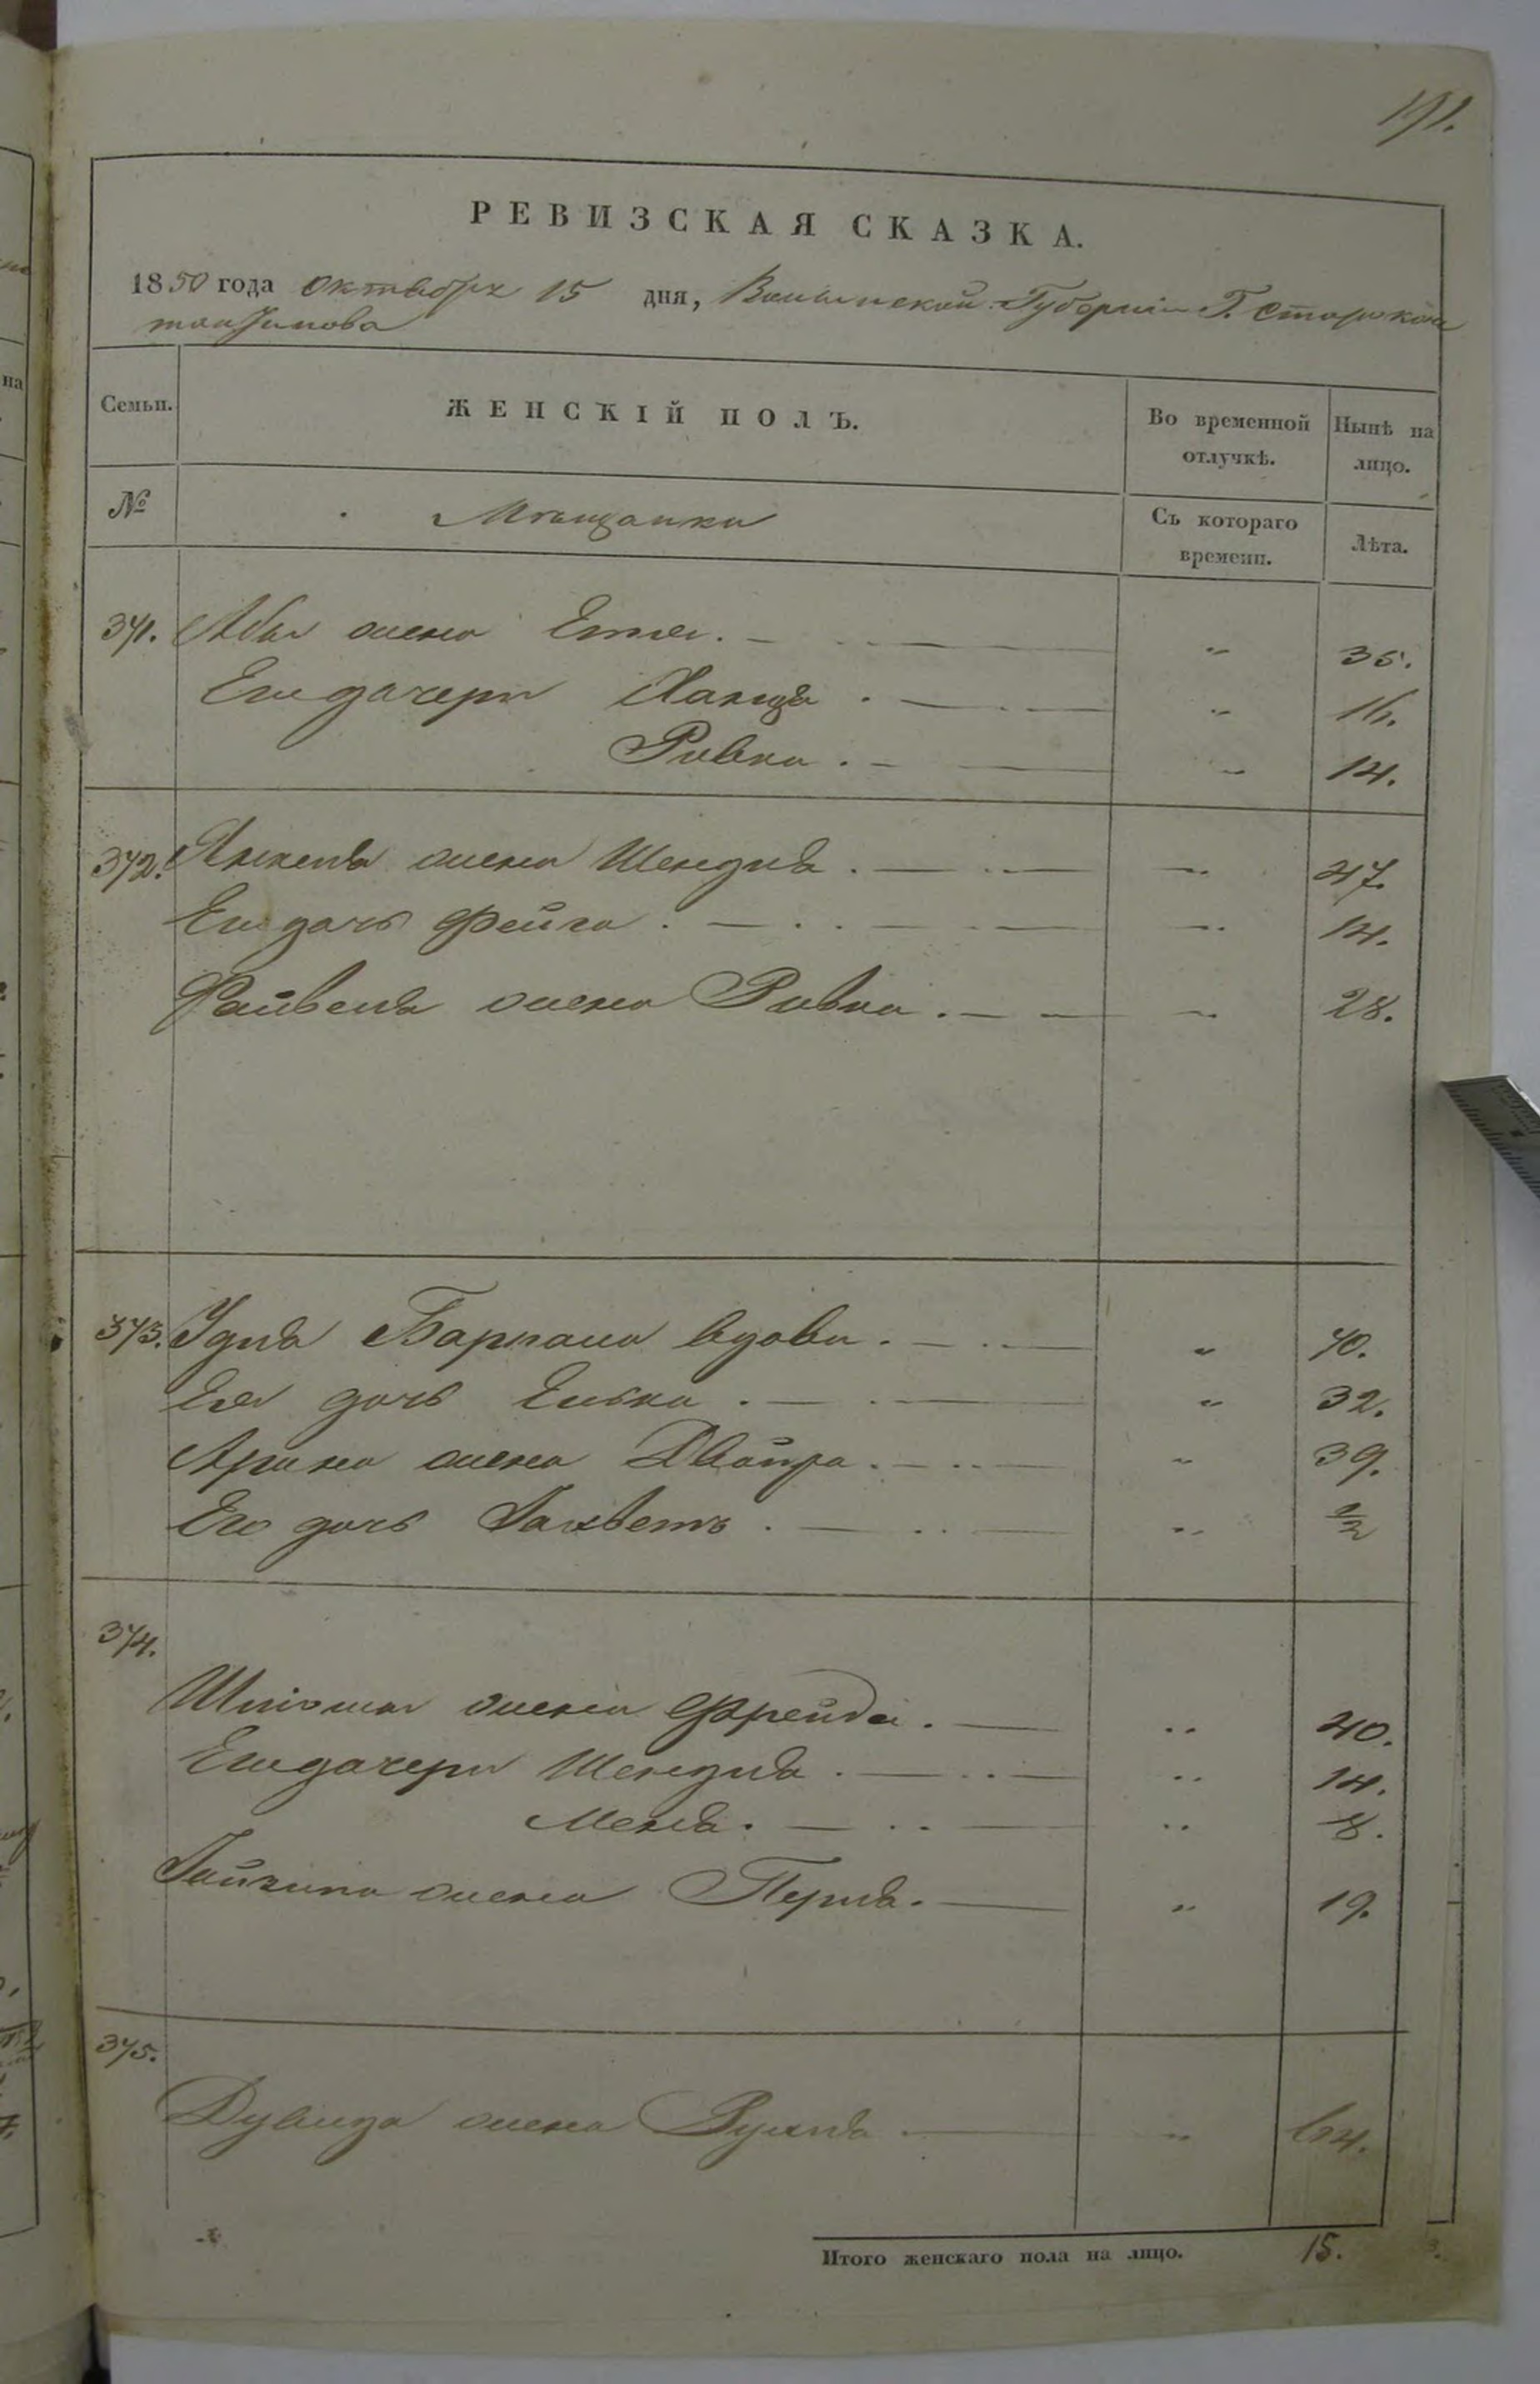 191.
РЕВИЗСКАЯ СКАЗКА.
1850 года Октября 15 дня, Волынской Губерніи Г. Старокон
стантинова
Семьи. ЖЕНСКІЙ ПОЛЪ. Во временной отлучкѣ. Нынѣ на лицо.
№ Мѣщанки Съ котораго времени. Лѣта.
371. Абы жена Етя. „ 35.
Его дочери Ханця „ 16.
Ривка „ 14.
372. Янкеля жена Шендля „ 47.
Его дочь Фейга „ 14.
Файвеля жена Ривка „ 28.
373. Удля вдова „ 70.
Ея дочь Енька „ 32.
жена Двойра „ 39.
Его дочь „ 1/2
374.
Шліомы жена Фрейда „ 40.
Его дочери Шендля „ 14.
Меня „ 8.
жена Перля „ 19.
375.
Дувида жена Рухля „ 64.
Итого женскаго пола на лицо. 15.